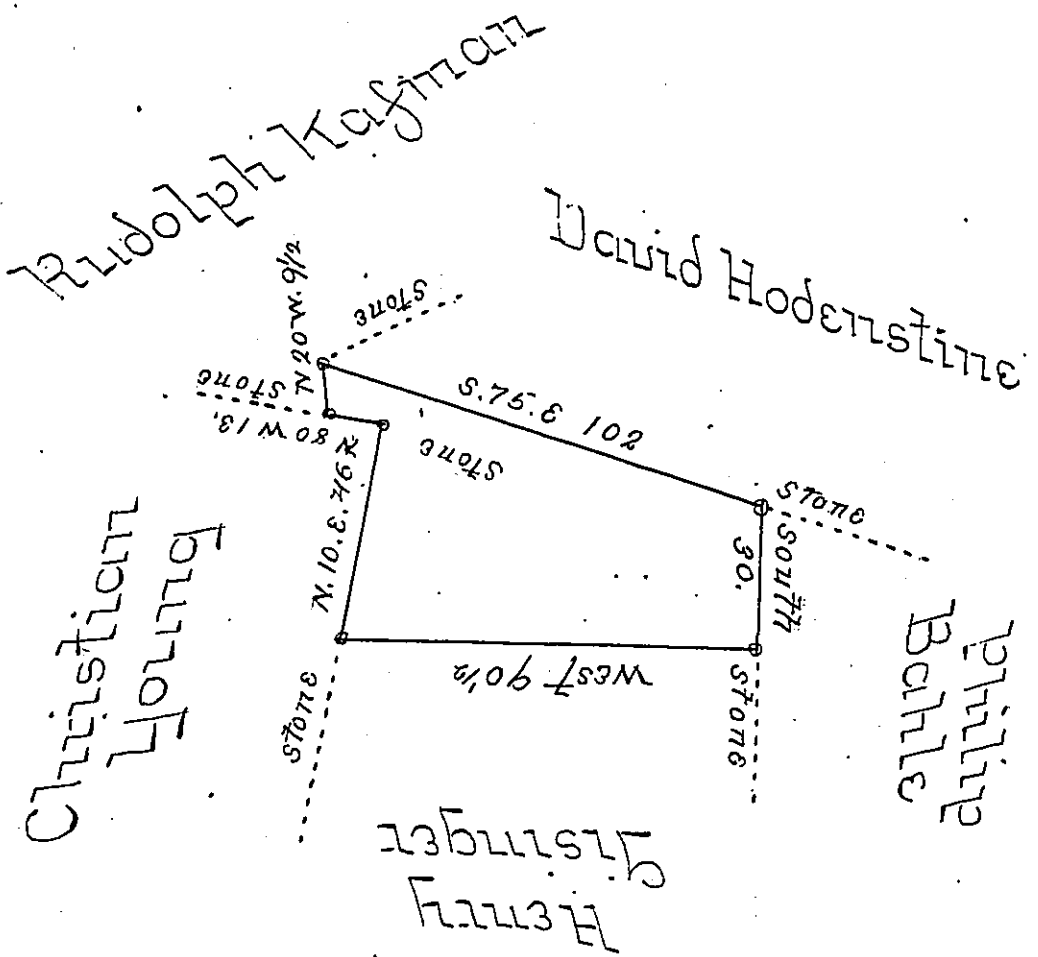 Rudolph Kafman
David Hodenstine
N 20 W. 9 1/2
Stone
Stone
N 80 W 13.
Stone
S. 75. E 102
Stone
N. 10. E. 46
South
30.
West 90 1/2
Stone
Stone
Christian
Young
Philip
Bahle
Henry
Gisinger